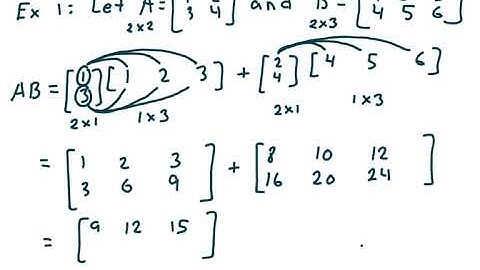 Ex 1: Let A = [ 3 4 ] and B = [ 4 5 6 ]
2x2 2x3
AB = [1 3] [1 2 3] + [2 4] [4 5 6]
2x1 1x3 2x1 1x3
= [1 2 3 + [8 10 12
3 6 9] 16 20 24]
= [9 12 15]